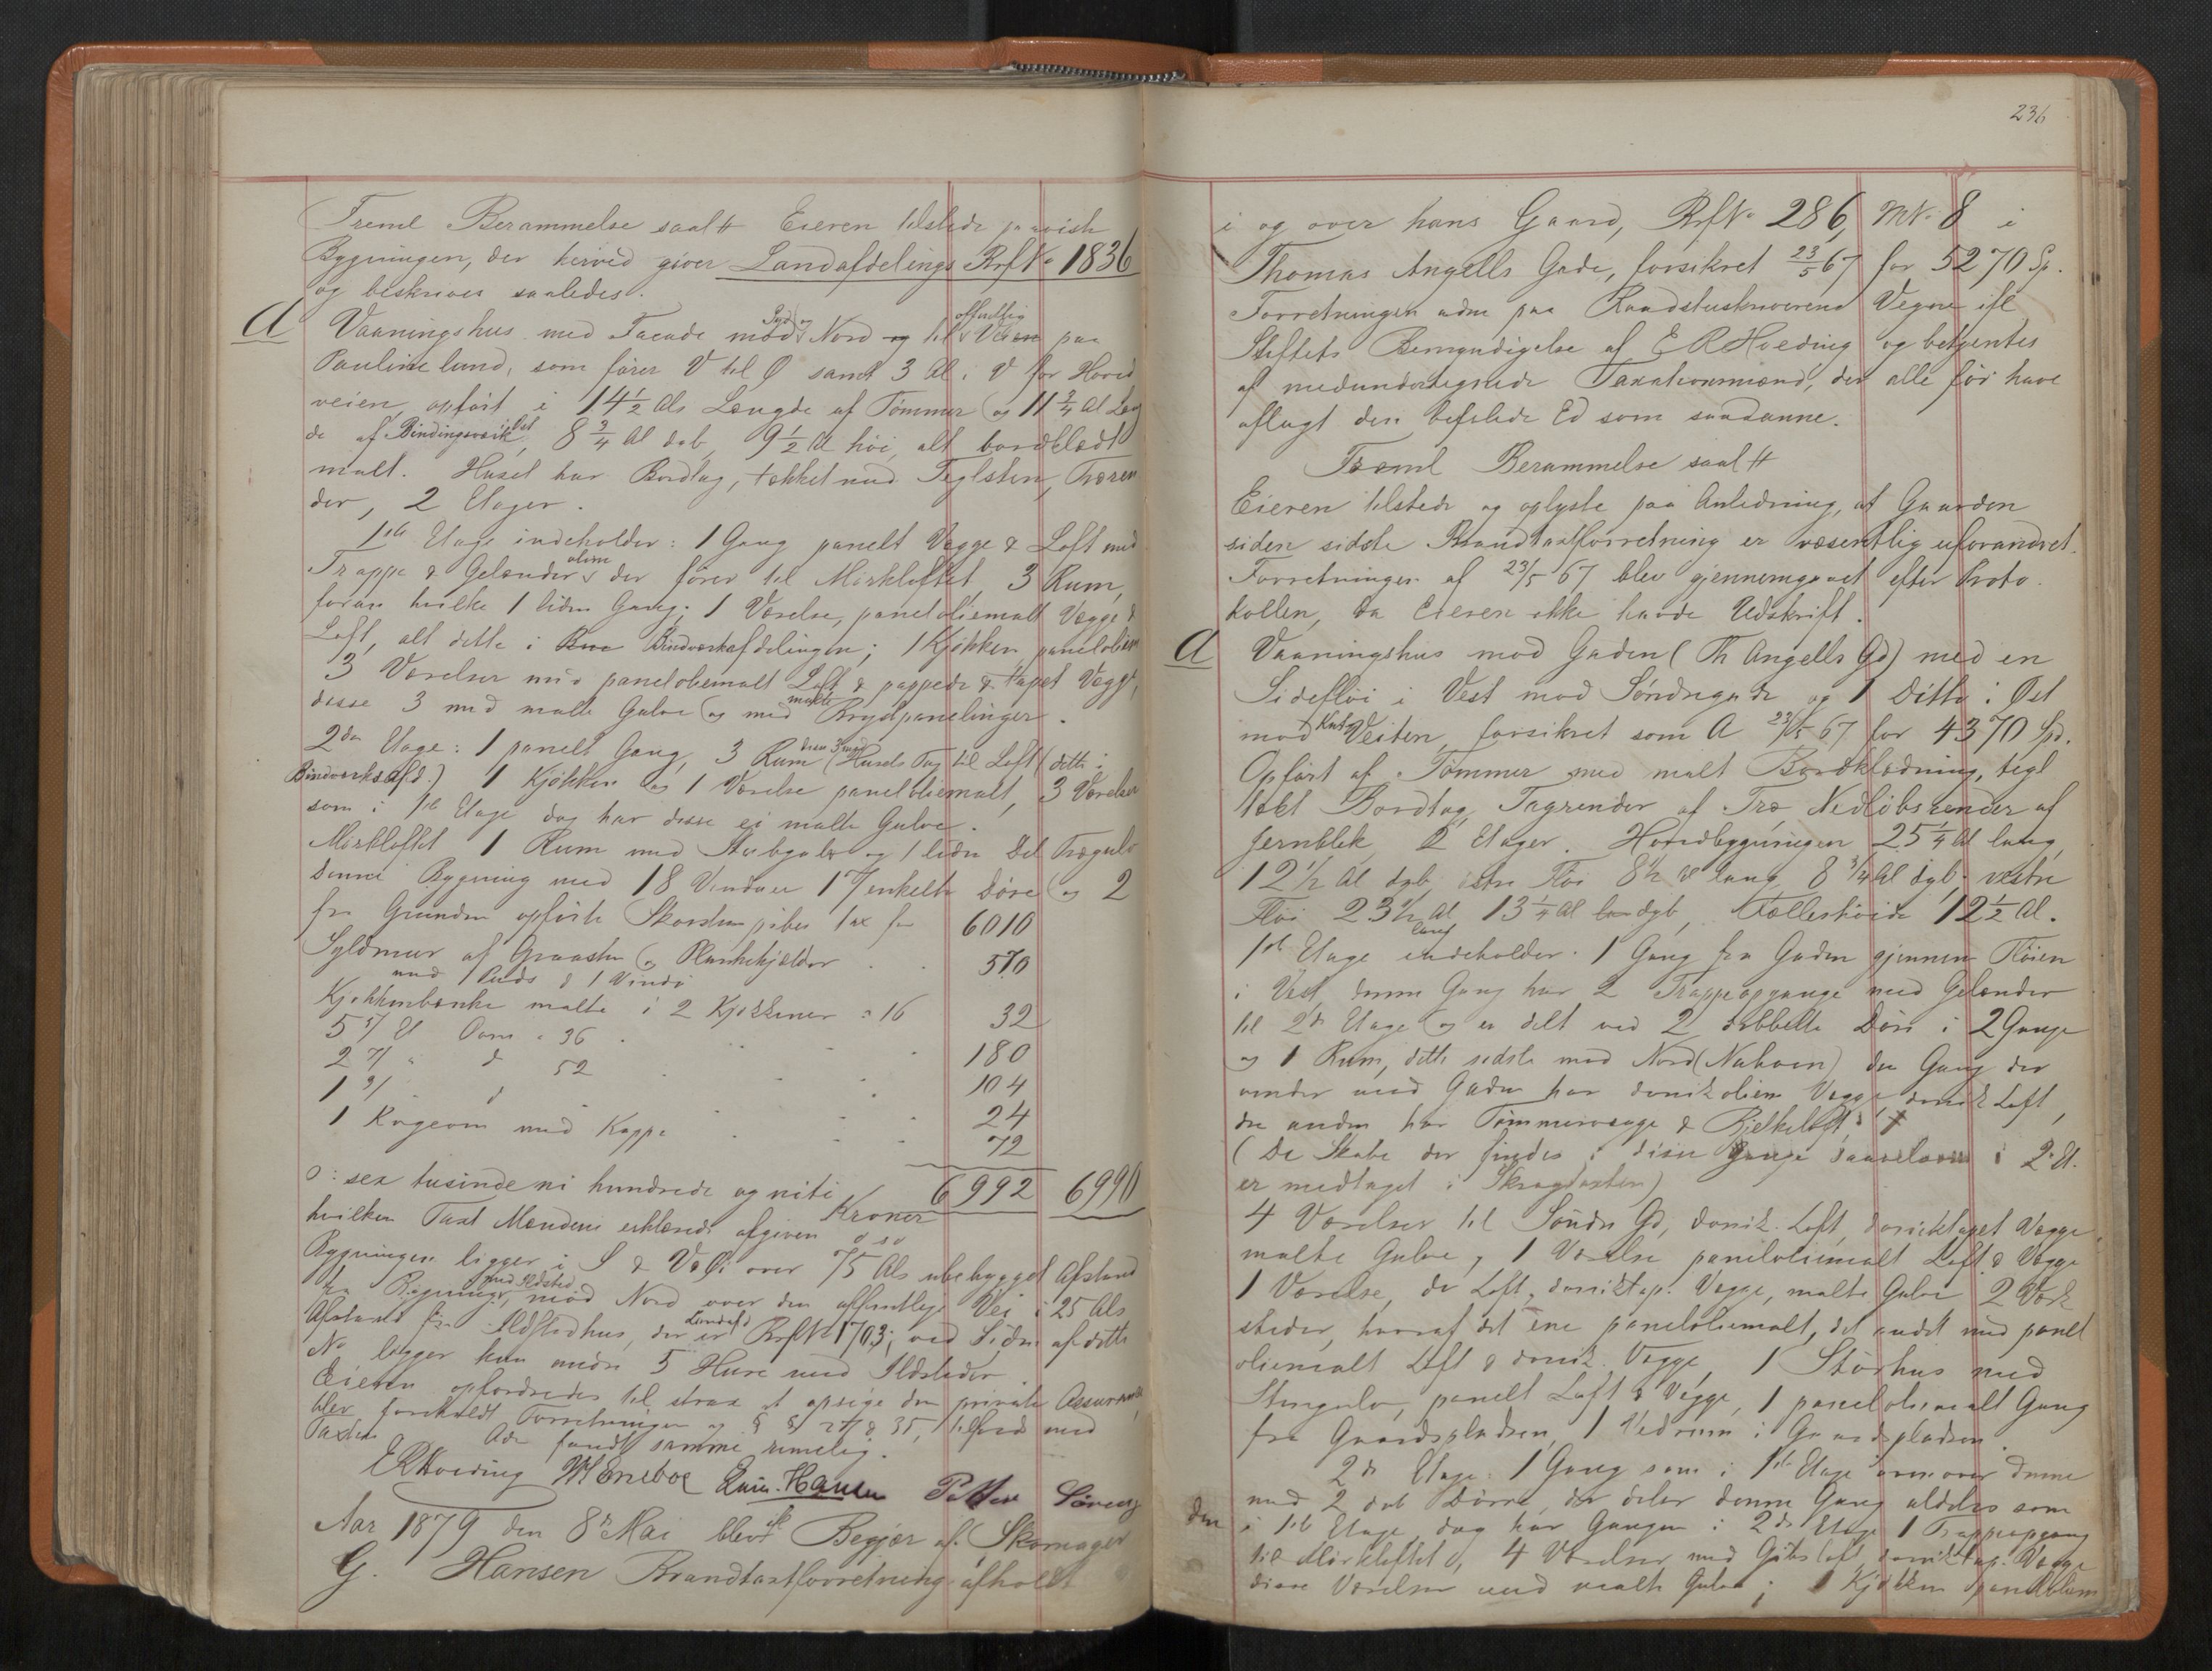 Freml Berammelse saalt Eieren tilstede paaviste
Bygningen, der herved giver Landafdelings Brf No 1836
og beskrives saaledes.
A Vaaningshus med Facade mod Syd og Nord til offentlig Veien paa
Paulinelund, som fører V til Ø samt 3 Al i V for Hoved
veien opført i 14 1/2 Als Længde af Tømmer og 11 3/4 Al Læng
de af Bindingsværk, 8 3/4 Al dyb, 9 1/2 Al høi, alt bordklædt
malt. Huset har Bordtag, tækket med Teglsten, Træren
der, 2 Etager.
1ste Etage indeholder: 1 Gang panelt Vægge & Loft med
Trappe & Gelænder der fører til Mørkloftet, 3 Rum,
foran hvilke 1 liden Gang; 1 Værelse, paneloliemalt Vægge &
Loft, alt dette i Bindværkafdelingen; 1 Kjøkken paneloliem
3 Værelser med paneloliemalt Loft & pappede & tapet Vægge,
disse 3 med malte Gulve og med malte Brystpanelinger.
2den Etage: 1 panelt Gang, 3 Rum disse 3 med Husets Tag til Loft (dette i
Bindværksafd.) 1 Kjøkken og 1 Værelse paneloliemalt, 3 Værelser
som i 1ste Etage dog har disse ei malte Gulve.
Mørkloftet 1 Rum med Stubgulv og 1 liden Del Trægulv
Denne Bygning med 18 Vinduer 17 enkelte Døre og 2
fra Grunden opførte Skorstenspiber tax for 6010
Syldmur af Graasten og Plankekjælder 570
med 1 Vindu
Kjøkkenbænke malte i 2 Kjøkkener a 16 32
5 Et Ovn a 36 180
2 " d 52 104
1 3/ d 24
1 Kogeovn med Kappe 72
o: sex tusinde ni hundrede og niti Kroner 6992 6990
hvilken Taxt Mændene erklærede afgiven
Bygningen ligger i S & V & Ø over 75 Als ubebygget Afstand
fra Bygninger med Ildsted, mod Nord over den offentlige Vei i 25 Als
Afstand fra Ildstedhus, der er Landafd Brf No 1703; ved Siden af dette
No ligger kun andre 5 Huse med Ildsteder.
Eieren opfordredes til strax at opsige den private Assurance,
blev foreholdt Forretningen og § § 27 & 35, tilfreds med
Taxten fandt samme rimelig.
E R Hoeding Petter
Aar 1879 den 8de Mai blev Begjær af Skomager
G. Hansen Brandtaxtforretning afholdt
236
i og over hans Gaard, Brf No 286, M No 8 i
Thomas Angells Gade, forsikret 23/5 67 for 5270 Sp.
Forretningen adm paa Raadstuskriverens Vegne ifl
Stiftets Bemyndigelse af E R Hoeding og betjentes
af medundertegnede Taxationsmænd, der alle før have
aflagt den befalede Ed som saadanne.
Freml Berammelse saalt
Eieren tilstede og oplyste paa Anledning, at Gaarden
siden sidste Brandtaxtforretning er væsentlig uforandret.
Forretningen af 23/5 67 blev gjennemgaaet efter Proto
kollen, da Eieren ikke havde Udskrift.
A Vaaningshus mod Gaden (Th Angells Gd) med en
Sidefløi i Vest mod Søndregade og 1 Ditto i Øst
mod Veiten, forsikret som A 23/5 67 for 4370 Spd.
Opført af Tømmer med malt Bordklædning, tegl
tækt Bordtag, Tagrender af Træ, Nedløbsrender af
Jernblik, 2 Etager. Hovedbygningen 25 1/4 Al lang,
12 1/2 Al dyb, østre Fløi 8 1/2 Al lang, 8 3/4 Al dyb; vestre
Fløi 23 1/2 Al lang, 13 1/4 Al dyb, Fælleshøide 12 1/2 Al.
1ste Etage indeholder: 1 Gang fra Gaden gjennem Fløien
i Vest, denne Gang har 2 Trappeopgange med Gelænder
til 2den Etage og er delt ved 2 dobbelte Døre i 2 Gange
og 1 Rum, dette sidste mod Nord (Naboen) den Gang der
vender mod Gaden har donik oliem Vægge, donik Loft,
den anden har Tømmervægge & Bjelkeloft
(De Skabe der findes i disse Gange saavelsom i 2 Et.
er medtaget i Skragtaxten)
4 Værelser til Søndre Gd, donik Loft, doniktapet Vægge,
malte Gulve, 1 Værelse paneloliemalt Loft & Vægge
1 Værelse, do Loft, doniktap. Vægge, malte Gulve 2 Værk
steder, hvoraf det ene paneloliemalt, det andet med panel
oliemalt Loft & donik. Vægge, 1 Størhus med
Stengulv, panelt Loft & Vægge, 1 paneloliemalt Gang
fra Gaardspladsen, 1 Vedrum i Gaardspladsen.
2de Etage: 1 Gang som i 1ste Etage ovenover denne
med 2 dob Dørre, der deler denne Gang aldeles som
i 1ste Etage, dog har Gangen i 2de Etage 1 Trappeopgang
til Mørkloftet, 4 Værelser med Gibsloft, doniktap. Vægge
disse Værelser med malte Gulve; 1 Kjøkken paneloliem